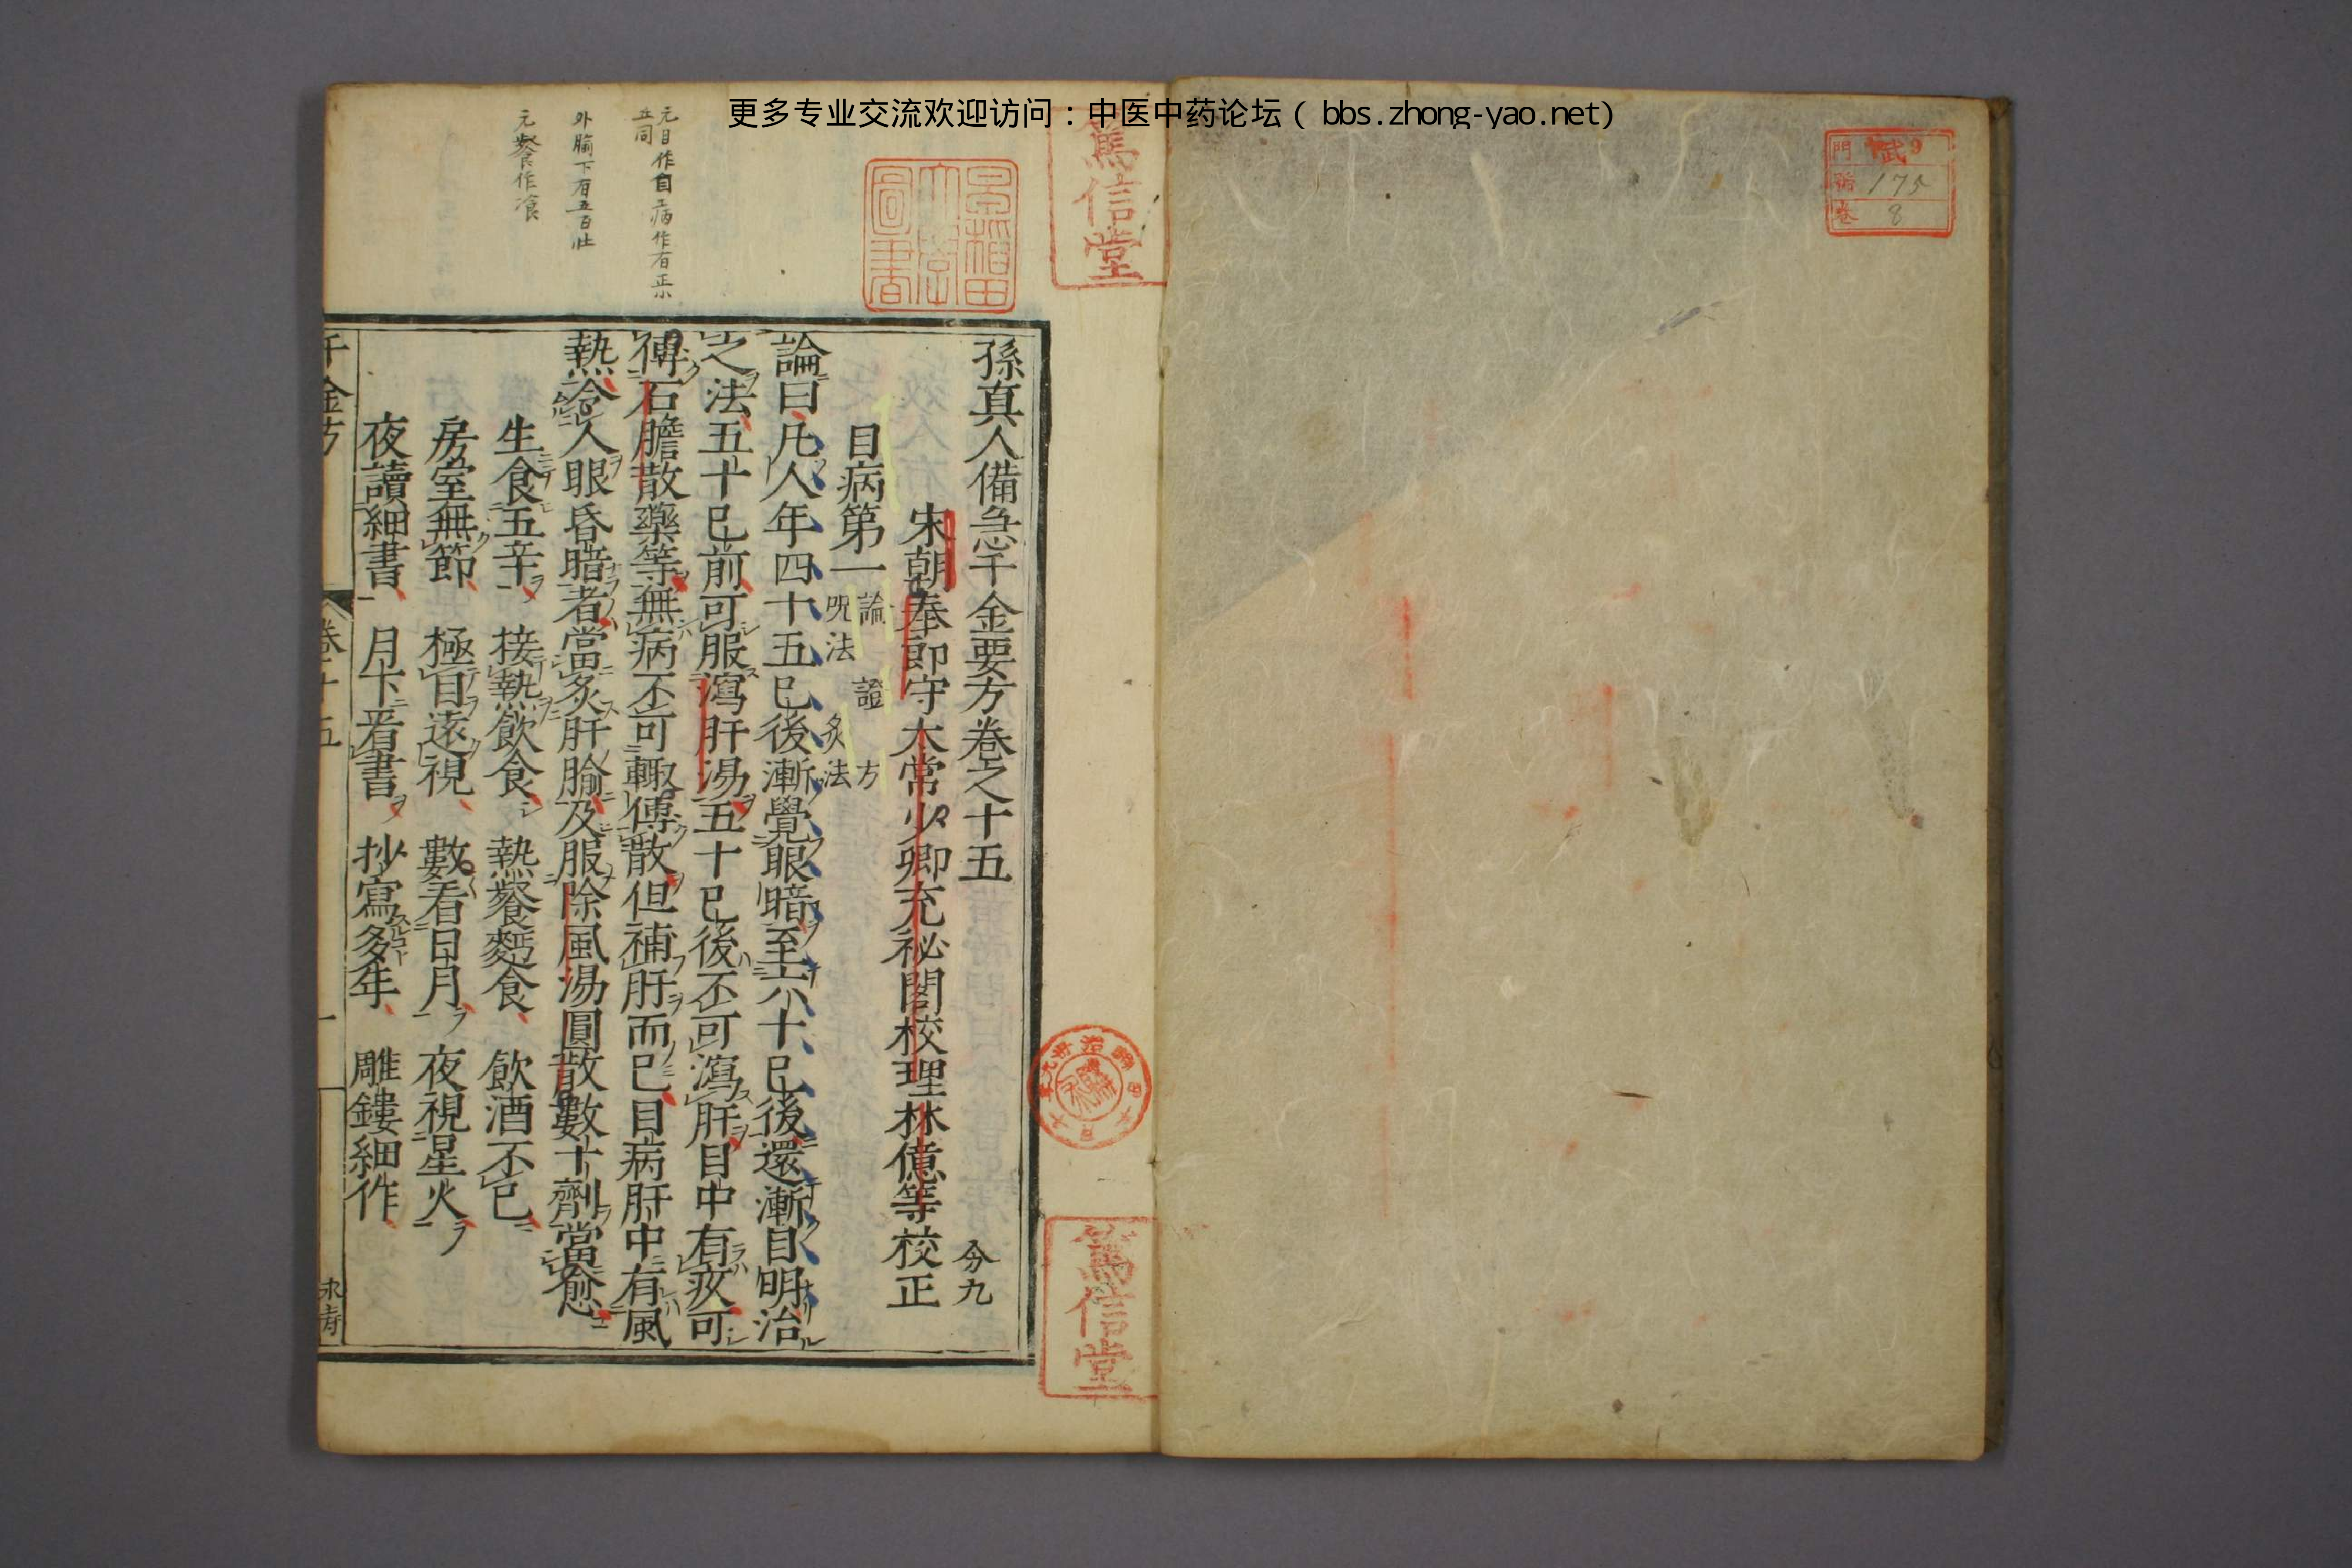 更多专业交流欢迎访问：中医中药论坛 ( bbs.zhong-yao.net)
門 武 9
號 175
卷 8
篤信堂
圖書
篤信堂
元目作自病作有正小
五同
外腧下有五百壯
元餐作飡
孫真人備急千金要方卷之十五 分九
宋朝奉郎守太常少卿充祕閣校理林億等校正
目病第一 論 證 方
呪法 灸法
論曰凡人年四十五已後漸覺眼暗至六十已後還漸自明治
之法五十已前可服瀉肝湯五十已後不可瀉肝目中有疾可
傅石膽散藥等無病不可輒傅散但補肝而已目病肝中有風
熱令人眼昏暗者當灸肝腧及服除風湯圓散數十劑當愈
生食五辛 接熱飲食 熱餐麪食 飲酒不已
房室無節 極目遠視 數看日月 夜視星火
夜讀細書 月下看書 抄寫多年 雕鏤細作
千金方 卷十五 一